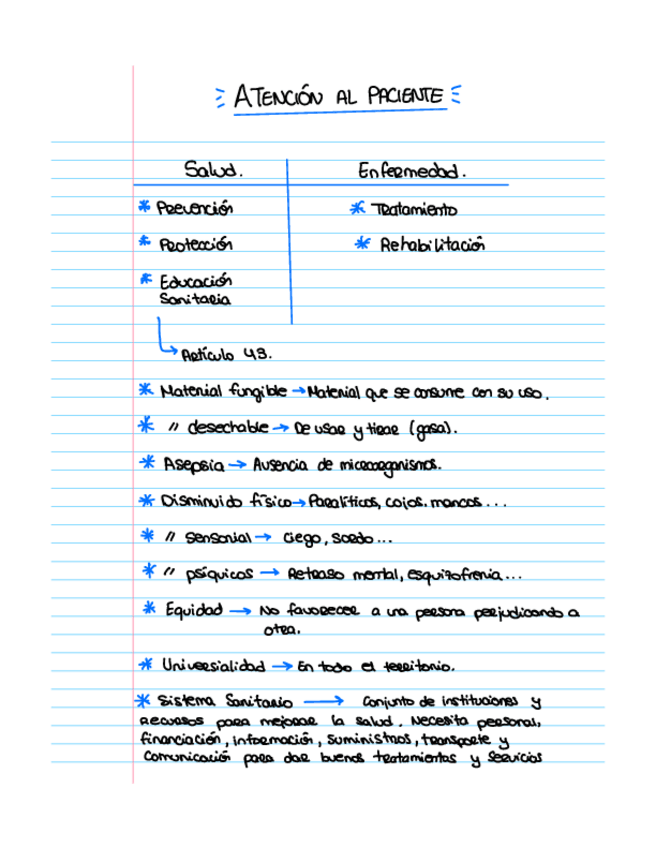 ATENCIÓN AL PACIENTE
Salud.
Enfermedad.
* Prevención
* Tratamiento
* Protección
* Rehabilitación
* Educación
Sanitaria
↳ Artículo 43.
* Material fungible → Material que se consume con su uso.
* " desechable → De usar y tirar (gasa).
* Asepsia → Ausencia de microorganismos.
* Disminuido físico → Paralíticos, cojos, mancos...
* " sensorial → ciego, sordo...
* " psíquicos → Retraso mental, esquizofrenia...
* Equidad → No favorecer a una persona perjudicando a
otra.
* Universialidad → En todo el territorio.
* Sistema Sanitario → Conjunto de instituciones y
recursos para mejorar la salud. Necesita personal,
financiación, información, suministros, transporte y
comunicación para dar buenos tratamientos y servicios